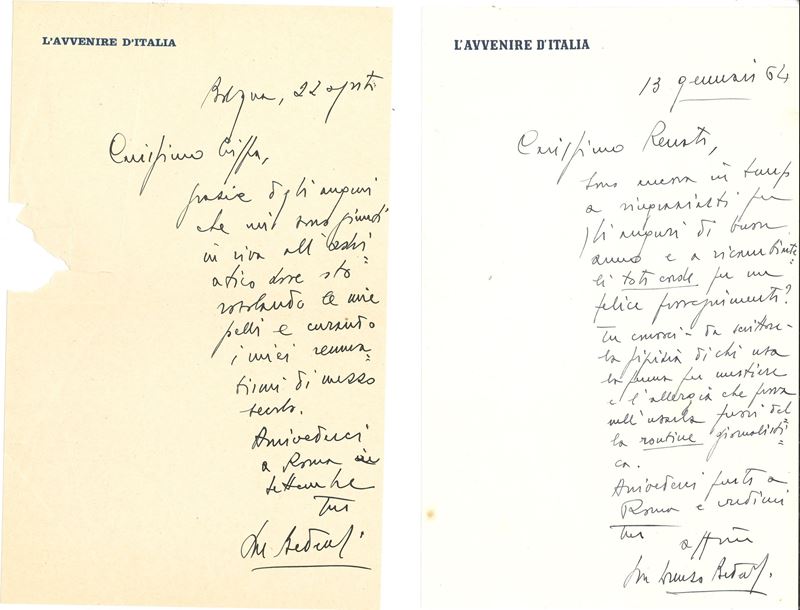 L'AVVENIRE D'ITALIA
Bologna, 22 agosto
Carissimo Crispa,
grazie degli auguri
che mi sono giunti
in riva all'Adri=
atico dove sto
rosolando le mie
pelli e curando
i miei reuma=
tismi di mezzo
secolo.
Arrivederci
a Roma
settembre
tuo
L'AVVENIRE D'ITALIA
13 gennaio 64
Carissimo Renato,
Sono ancora in tempo
a ringraziarti per
gli auguri di buon
anno e a ricambiar=
li toto corde per un
felice proseguimento?
Tu conosci - da scrittore -
la pigrizia di chi usa
la penna per mestiere
e l'allergia che prova
nell'usarla fuori del=
la routine giornalisti=
ca.
Arrivederci presto a
Roma e credimi
tuo
aff.mo
Don Lorenzo Bedeschi.